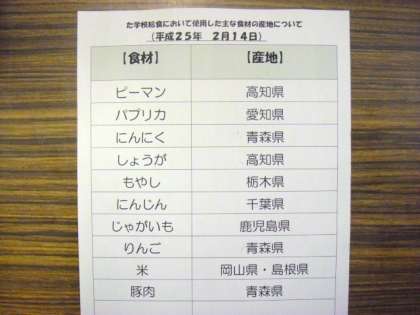 た学校給食において使用した主な食材の産地について
（平成２５年　２月１４日）
【食材】　【産地】
ピーマン　高知県
パプリカ　愛知県
にんにく　青森県
しょうが　高知県
もやし　栃木県
にんじん　千葉県
じゃがいも　鹿児島県
りんご　青森県
米　岡山県・島根県
豚肉　青森県